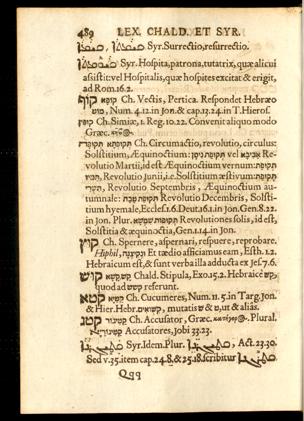 489 LEX. CHALD. ET SYR.
Syr. Surrectio, resurrectio.
Syr. Hospita, patrona, tutatrix, quæ alicui
assistit: vel Hospitalis, quæ hospites excitat & erigit,
ad Rom. 16. 2.
קוף Ch. Vectis, Pertica. Respondet Hebræo
מוט, Num. 4. 12. in Jon. & cap. 13. 24. in T. Hieros.
Ch. Simiæ, 1. Reg. 10. 22. Convenit aliquo modo
Græc.
Ch. Circumactio, revolutio, circulus:
Solstitium, Æquinoctium: תקופת ניסן vel אביבא Re-
volutio Martii, id est, Æquinoctium vernum: תקופת
תמוז, Revolutio Junii, i.e. Solstitium æstivum: תקופת
תשרי, Revolutio Septembris, Æquinoctium au-
tumnale: תקופת טבת Revolutio Decembris, Solsti-
tium hyemale, Eccles. 1. 6. Deut. 16. 1. in Jon. Gen. 8. 22.
in Jon. Plur. Revolutiones solis, id est,
Solstitia & æquinoctia, Gen. 1. 14. in Jon.
קוץ Ch. Spernere, aspernari, respuere, reprobare.
Hiphil, Et tædio afficiamus eam, Esth. 1. 2.
Hebraicum est, & sunt verba illa adducta ex Jes. 7. 6.
קוש Chald. Stipula, Exo. 15. 2. Hebraicè קש,
quod ad קשש referunt.
קטא Ch. Cucumeres, Num. 11. 5. in Targ. Jon.
& Hier. Hebr. קשואים, mutatis ש & ט, ut & aliàs.
קטג Ch. Accusator, Græc. Plural.
Accusatores, Jobi 33. 23.
Syr. Idem. Plur. Act. 23. 30.
Sed v. 35. item cap. 24. 8. & 25. 18. scribitur
Qqq